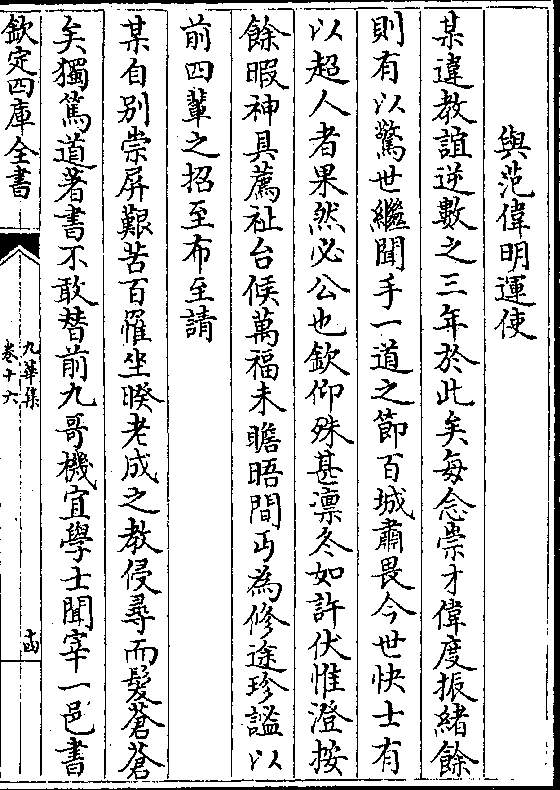 與范偉明運使
某違教誼逆數之三年於此矣每念崇才偉度振緒餘
則有以驚世繼聞手一道之節百城肅畏今世快士有
以超人者果然必公也欽仰殊甚凜冬如許伏惟澄按
餘暇神具薦祉台候萬福未瞻晤間丐為修途珍謐以
前四輩之招至布至請
某自別崇屏艱苦百罹坐暌老成之教侵尋而髮蒼蒼
矣獨篤道著書不敢替前九哥機宜學士聞宰一邑書
欽定四庫全書
九華集
卷十六
十四